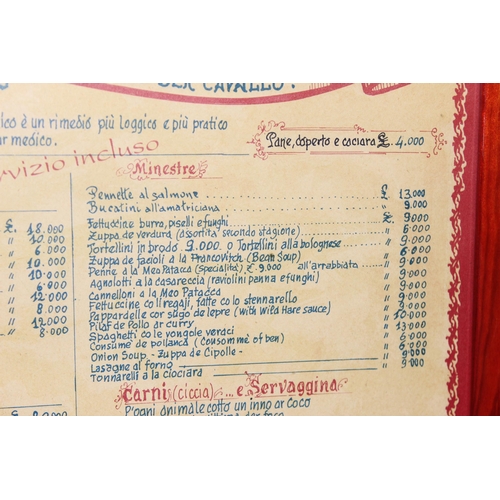 DER CAVALLO!
ico è un rimedio più loggico e più pratico
ar medico.
rvizio incluso
Pane, coperto e cociara £. 4.000
Minestre
£. 18.000
" 10.000
" 6.000
" 10.000
" 10.000
" 6.000
" 12.000
" 8.000
" 12.000
" 8.000
Pennette al salmone £. 13.000
Bucatini all'amatriciana " 9.000
Fettuccine burro, piselli e funghi £. 9.000
Zuppa de verdura (assortita secondo stagione) " 6.000
Tortellini in brodo 9.000. o Tortellini alla bolognese " 9.000
Zuppa de facioli a la Francovitch (Bean Soup) " 6.000
Penne a la Meo Patacca (specialità) £ 9.000 all'arrabbiata " 9.000
Agnolotti a la casareccia (raviolini panna e funghi) " 9.000
Cannelloni a la Meo Patacca " 9.000
Fettuccine co li regali, fatte co lo stennarello " 9.000
Pappardelle cor sugo de lepre (with Wild Hare sauce) " 10.000
Pilaf de Pollo ar curry " 13.000
Spaghetti co le vongole veraci " 6.000
Consume de pollanca (Consommé of ben) " 6.000
Onion Soup - Zuppa de Cipolle - " 9.000
Lasagne al forno " 9.000
Tonnarelli a la ciociara
Carni (ciccia) ... e Servaggina
P'ogni animale cotto un inno ar coco